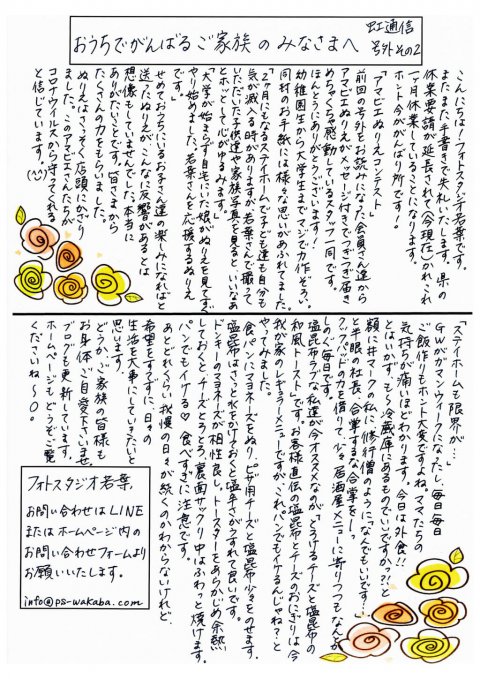 虹通信
号外その2
おうちでがんばるご家族のみなさまへ
こんにちは!フォトスタジオ若葉です。
またまた手書きで失礼いたします。県の
休業要請が延長されて(今現在)かれこれ
一ヶ月休業していることになります。
ホント今ががんばり所です!
「アマビエぬりえコンテスト」
前回の号外をお読みになった会員さん達から
アマビエぬりえがメッセージ付きでつぎつぎ届き
めちゃくちゃ感動しているスタッフ一同です。
ほんとうにありがとうございます!
幼稚園生から大学生までマジで力作ぞろい。
同封のお手紙には様々な思いがあふれてました。
「2ヶ月にもなるステイホームで子ども達も自分も
気が滅入る時がありますが若葉さんで撮って
いただいた子供達や家族写真を見ると、いいなあ
とホッとして心がゆるみます。」
「大学が始まらず自宅にいた娘がぬりえを見てすぐ
やり始めました。若葉さんを応援するぬりえ
です。」
せめておうちにいるお子さん達の楽しみになればと
送ったぬりえがこんなに反響があるとは
想像もしていませんでした。本当に
ありがたいことです。皆さまから
たくさんの力をもらいました。
ぬりえはさっそく店頭にかざり
ました。このアマビエさんたちが
コロナウイルスから守ってくれる
と信じています。
「ステイホームも限界が…」
GWがガマンウィークになったし、毎日毎日
ご飯作りもホント大変ですよね。ママたちの
気持ちが痛いほどわかります。今日は外食!!
とはいかずも〜冷蔵庫にあるものでいいですか??と
額に井マークの私に修行僧のように「なんでもいいです…」
と半眼の社長、合掌するな、合掌を〜!っ
クックパッドの力を借りて、少々居酒屋メニューに寄りつつもなんとか
しのぐ毎日です。
塩昆布ラブな私達が今オススメなのが「とろけるチーズと塩昆布の
和風トースト」です。お客様直伝の塩昆布とチーズのおにぎりは今
我が家のレギュラーメニューですが、これ、パンでもイケるんじゃね?と
やってみました。
食パンにマヨネーズをぬり、ピザ用チーズと塩昆布少々をのせます。
塩昆布はさっと水をかけておくと塩辛さがうすれて良いです。
ドンキーのマヨネーズが相性良し。トースターをあらかじめ余熱
しておくと、チーズとろとろ、裏面サックリ中はふわっと焼けます。
パンでもイケる♡ 食べすぎに注意です。
あとどれくらい我慢の日々が続くのかわからないけれど、
希望をすてずに日々の
生活を大事にしていきたいと
思います。
どうかご家族の皆様も
お身体ご自愛下さいませ。
ブログも更新しています。
ホームページもどうぞご覧
くださいね〜○。
フォトスタジオ若葉
お問い合わせはLINE
またはホームページ内の
お問い合わせフォームより
お願いいたします。
info@ps-wakaba.com